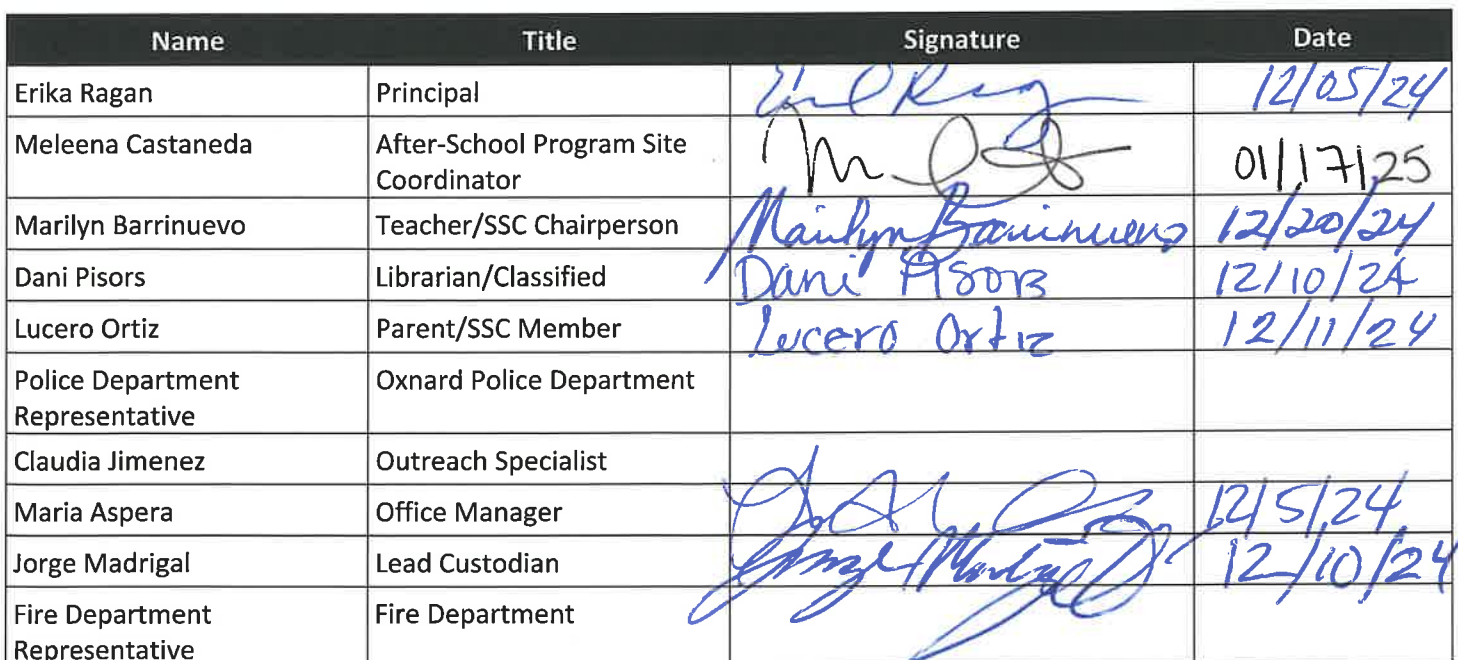 Name Title Signature Date
Erika Ragan Principal 12/05/24
Meleena Castaneda After-School Program Site
Coordinator 01/17/25
Marilyn Barrinuevo Teacher/SSC Chairperson Marilyn Barrinuevo 12/20/24
Dani Pisors Librarian/Classified Dani Pisors 12/10/24
Lucero Ortiz Parent/SSC Member Lucero Ortiz 12/11/24
Police Department Oxnard Police Department
Representative
Claudia Jimenez Outreach Specialist
Maria Aspera Office Manager 12/5/24
Jorge Madrigal Lead Custodian 12/10/24
Fire Department Fire Department
Representative